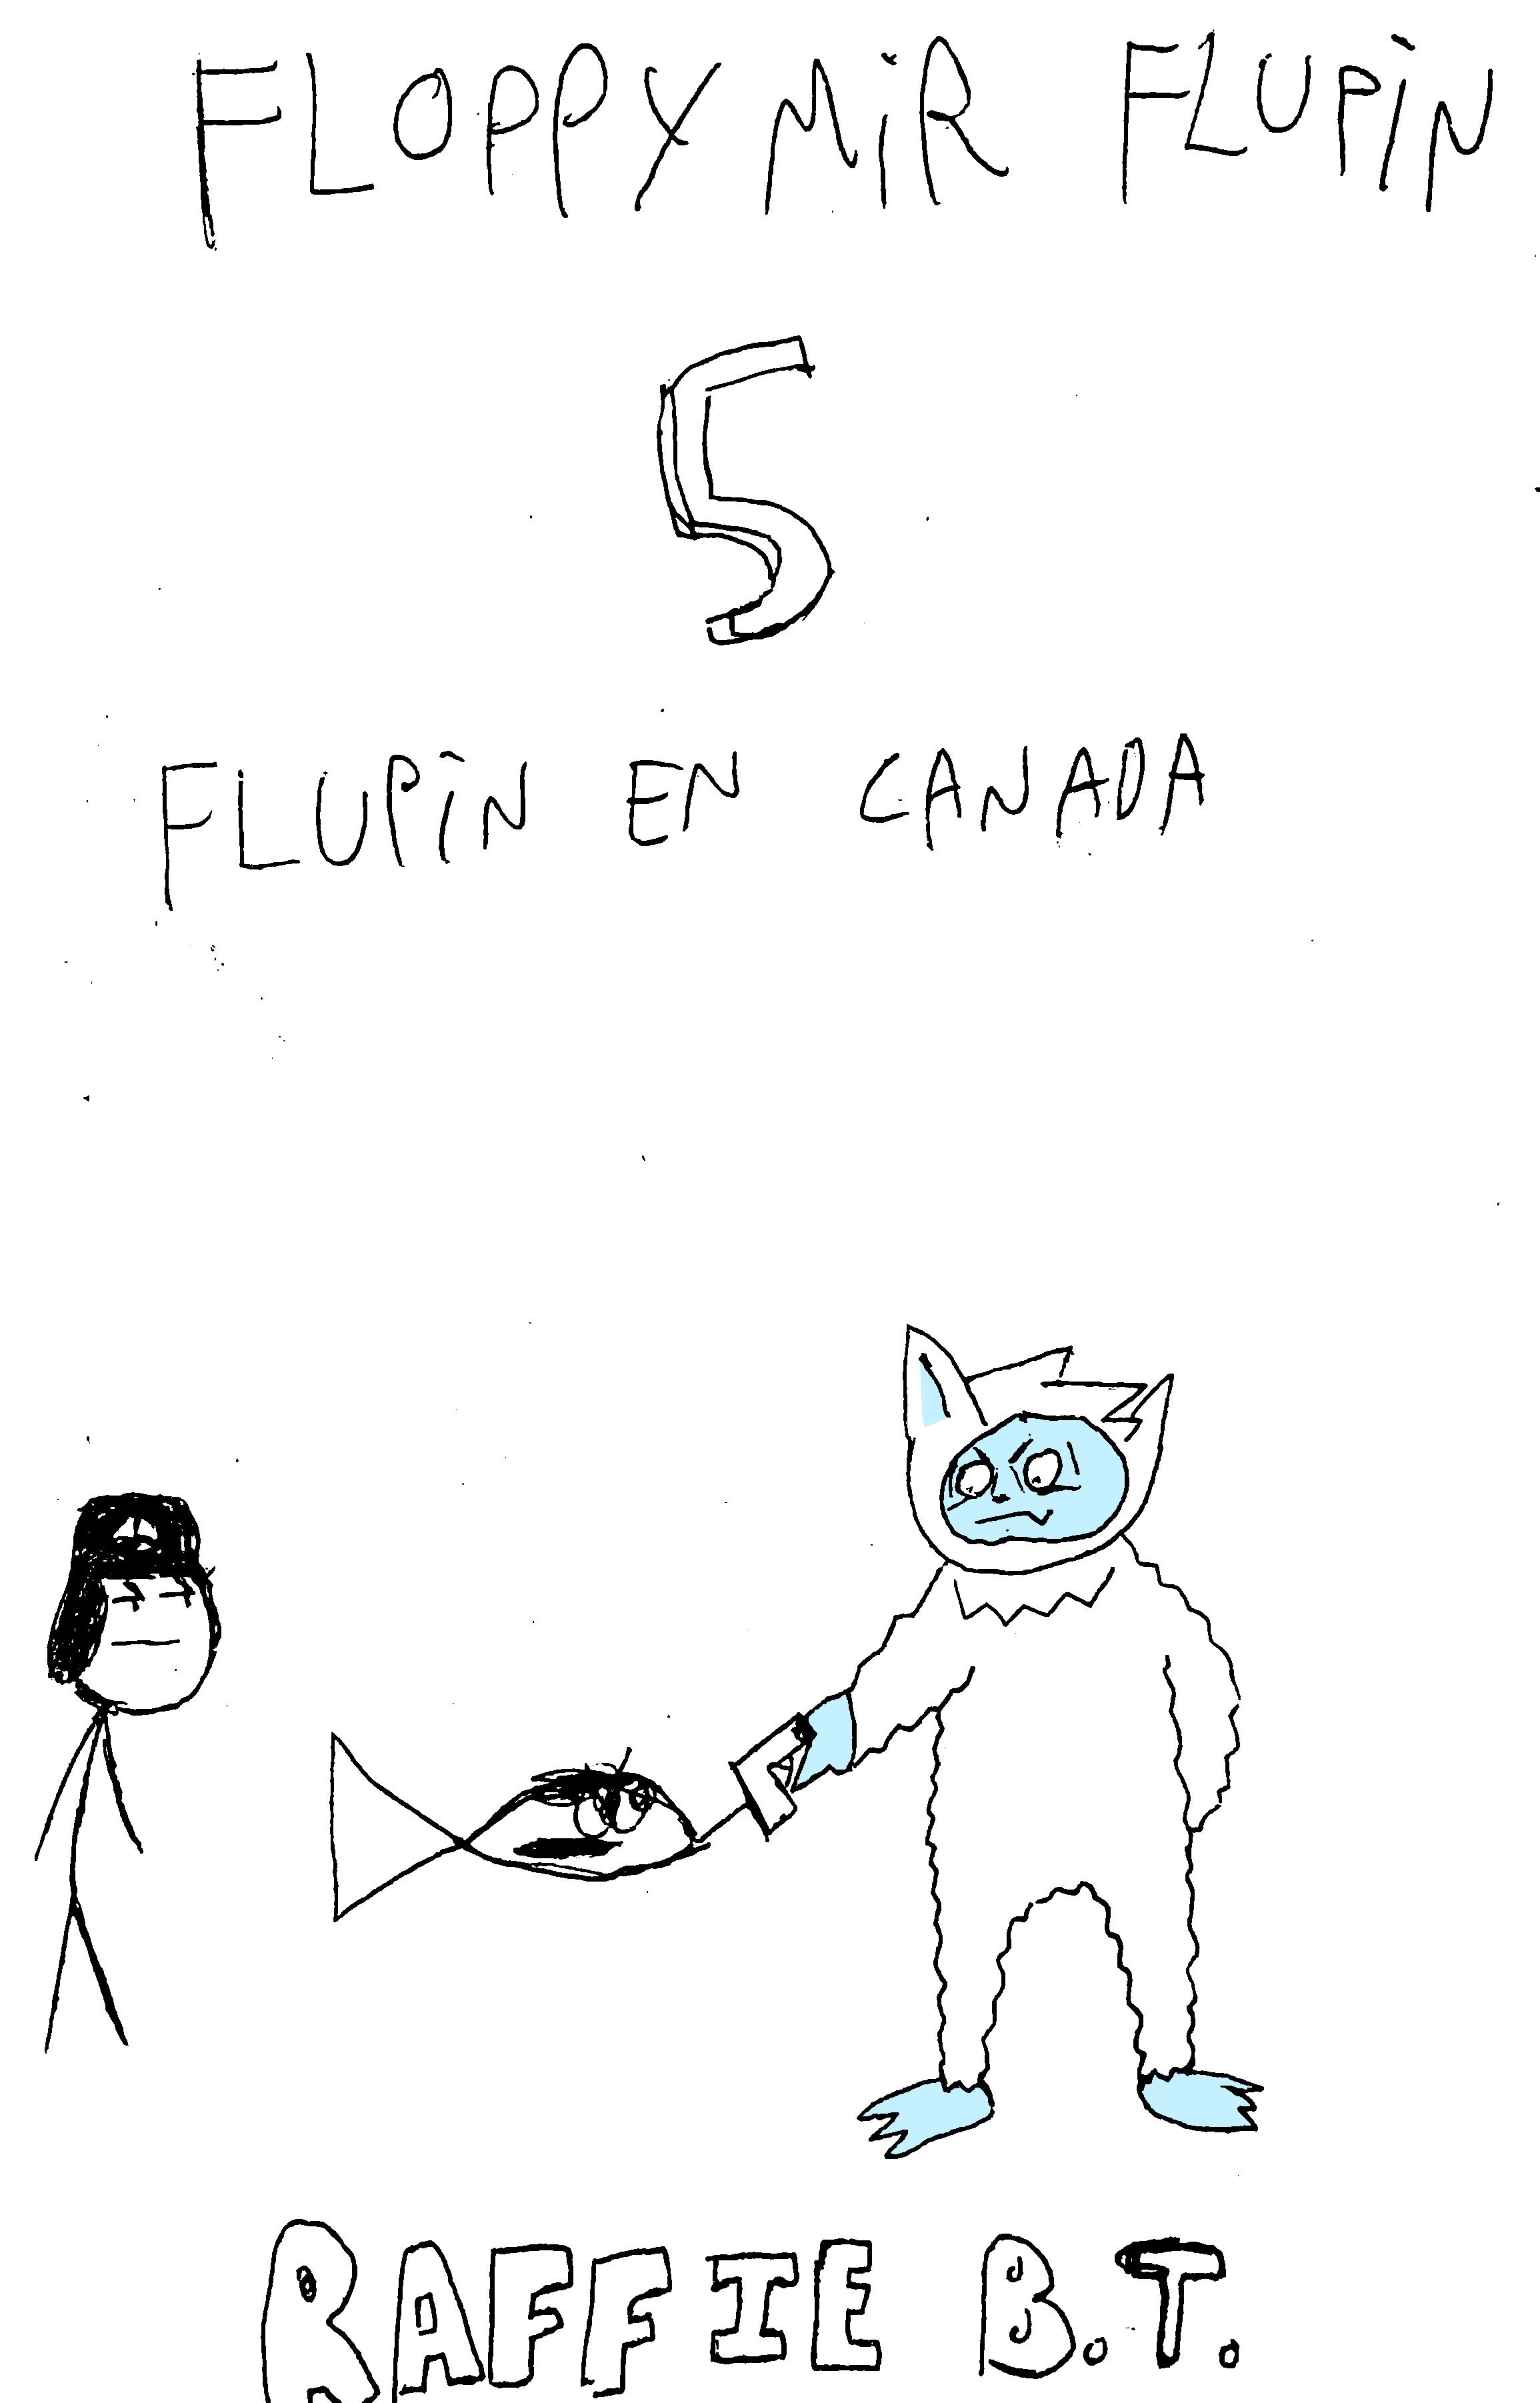 FLOPPYMIR FLUPIN
5
FLUPIN EN CANADA
RAFFIE B.T.